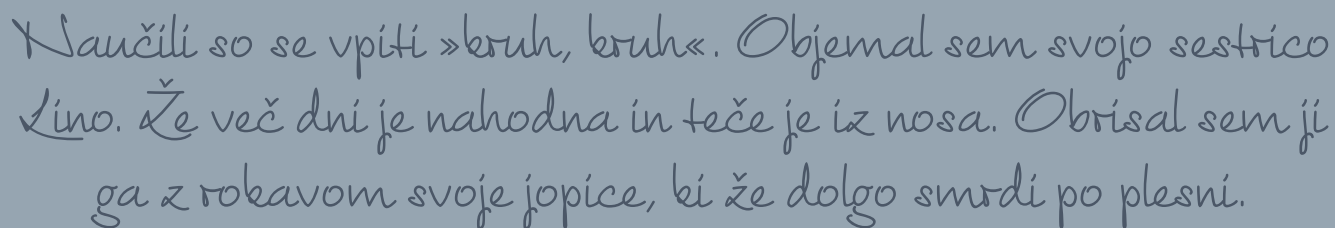 Naučili so se vpiti »kruh, kruh«. Objemal sem svojo sestrico
Lino. Že več dni je nahodna in teče je iz nosa. Obrisal sem ji
ga z rokavom svoje jopice, ki že dolgo smrdi po plesni.